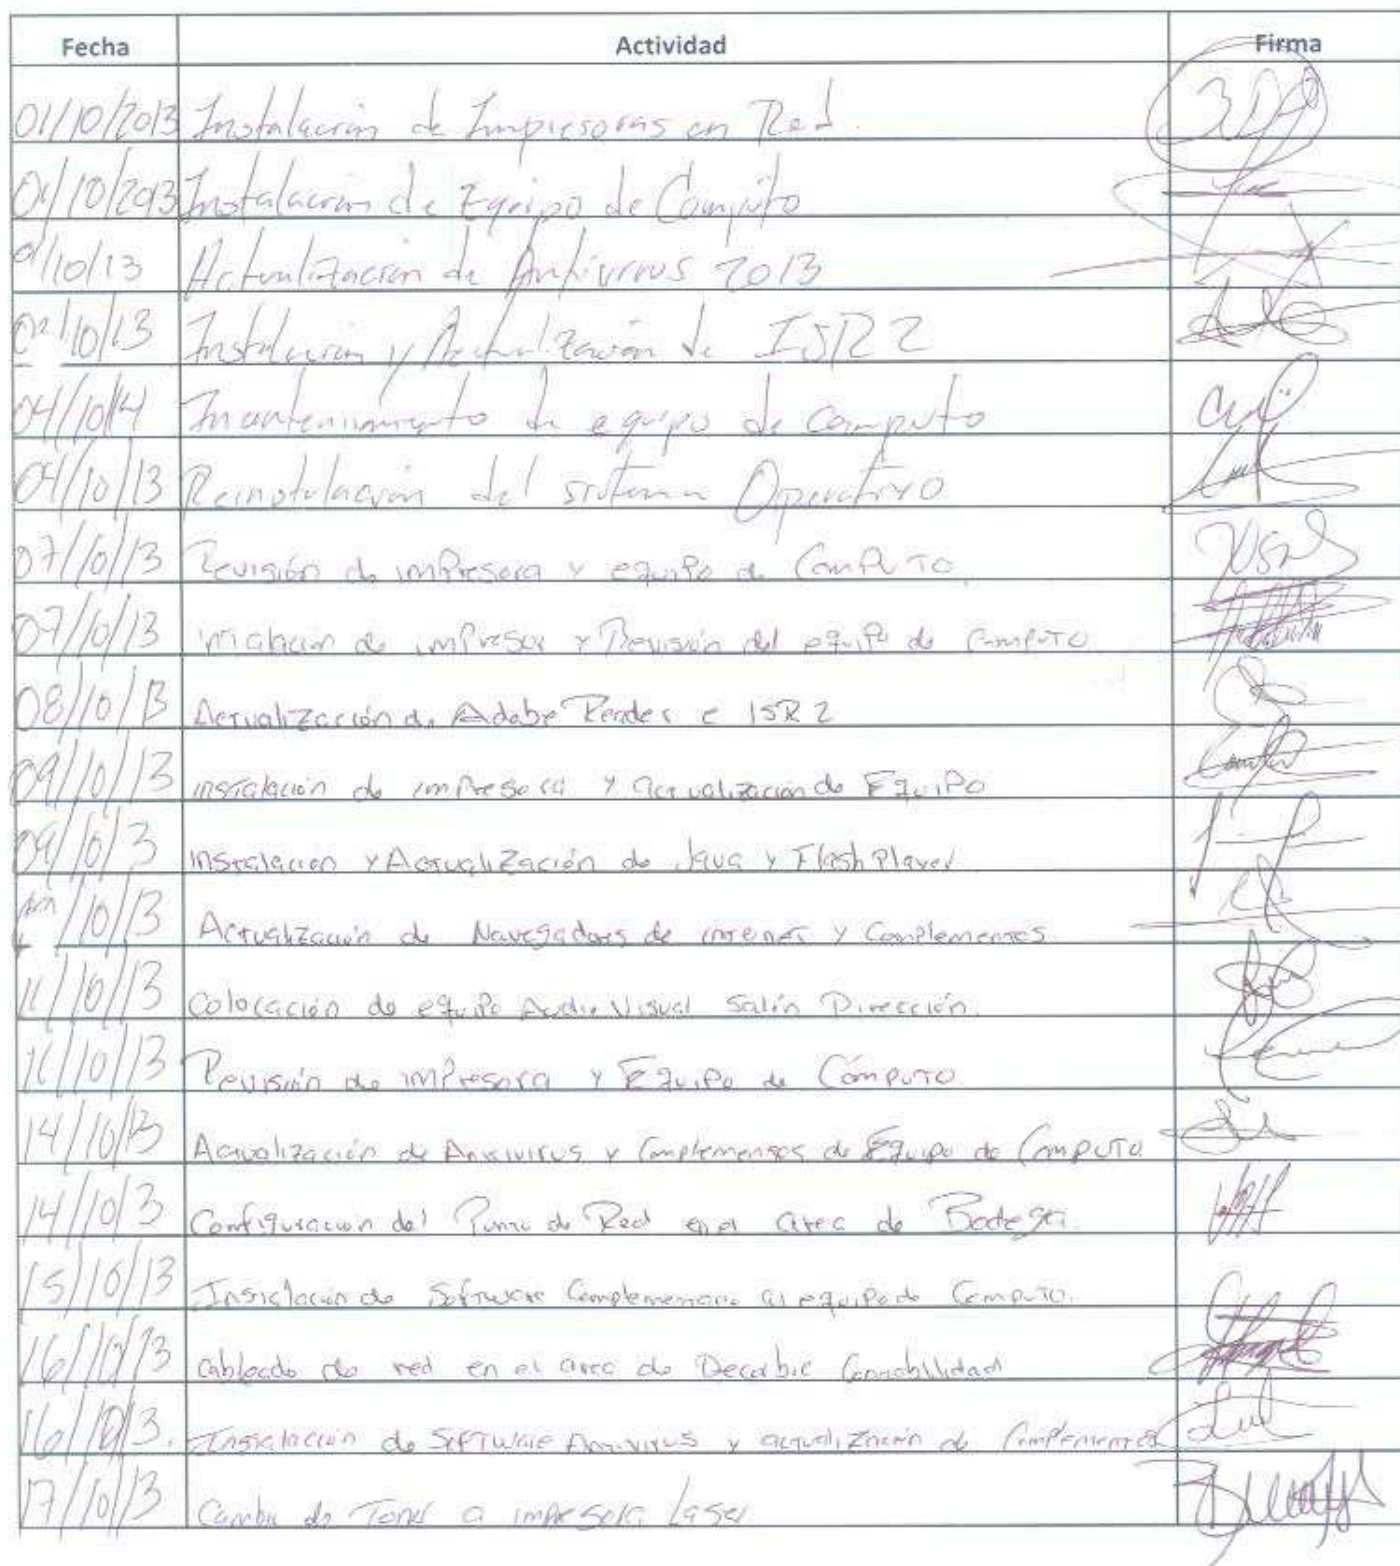 Fecha Actividad Firma
01/10/2013 Instalación de Impresoras en Red.
01/10/2013 Instalación de Equipo de Computo
01/10/13 Actualización de Antivirus 2013
02/10/13 Instalación y Actualización de ISR2
04/10/14 Mantenimiento de equipo de Computo
04/10/13 Reinstalación del sistema Operativo
07/10/13 Revisión de impresora y equipo de Computo.
07/10/13 de impresor y Revisión del equipo de Computo
08/10/13 Actualización de Adobe Render e ISR2
09/10/13 instalación de impresora y actualización de Equipo
09/10/13 Instalación y Actualización de Java y Flash Player
/10/13 Actualización de Navegadores de internet y Complementos
11/10/13 Colocación de equipo Audio Visual Salón Dirección.
11/10/13 Revisión de impresora y Equipo de Cómputo
14/10/13 Actualización de Antivirus y Complementos de Equipo de Computo
14/10/13 Configuración del Punto de Red en el area de Bodega.
15/10/13 Instalación de Software Complementario al equipo de Computo.
16/10/13 Cableado de red en el area de Contabilidad
16/10/13. Instalación de Software Antivirus y actualización de Complementos
17/10/13 Cambio de Toner a impresora Laser